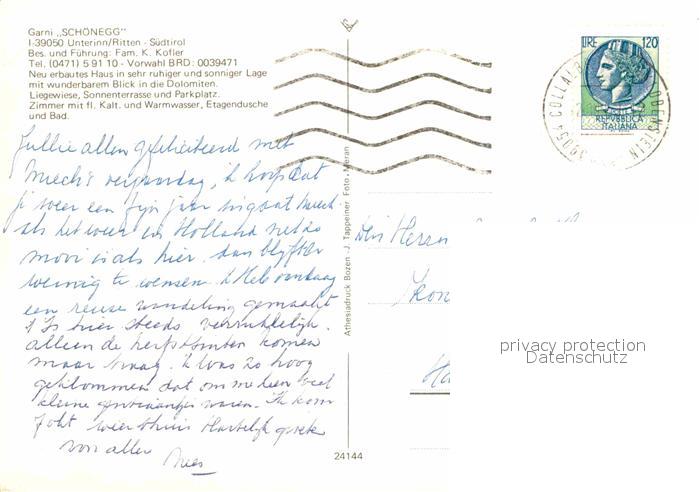 Garni „SCHÖNEGG"
I-39050 Unterinn/Ritten - Südtirol
Bes. und Führung: Fam. K. Kofler
Tel. (0471) 5 91 10 - Vorwahl BRD: 0039471
Neu erbautes Haus in sehr ruhiger und sonniger Lage
mit wunderbarem Blick in die Dolomiten.
Liegewiese, Sonnenterrasse und Parkplatz.
Zimmer mit fl. Kalt. und Warmwasser, Etagendusche
und Bad.
Jullie allen gefeliciteerd met
verjaardag, ik hoop dat
je weer een fijn jaar ingaat
als het weer in Holland net zo
mooi is als hier dan blijft er
weinig te wensen. Ik heb vandaag
een reuse wandeling gemaakt
't Is hier steeds verrukkelijk.
alleen de herfsttinten komen
maar traag. ik was zo hoog
geklommen dat om me heen veel
kleine gentiaantjes waren. Ik kom
weer thuis Hartelijk
van allen
Athesiadruck Bozen - J. Tappeiner Foto - Meran
24144
LIRE 120
REPVBBLICA
ITALIANA
39054
Den Herrn
privacy protection
Datenschutz